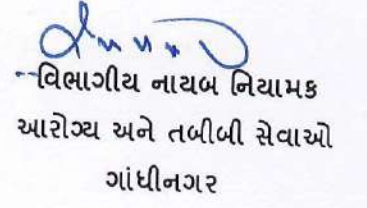 વિભાગીય નાયબ નિયામક
આરોગ્ય અને તબીબી સેવાઓ
ગાંધીનગર